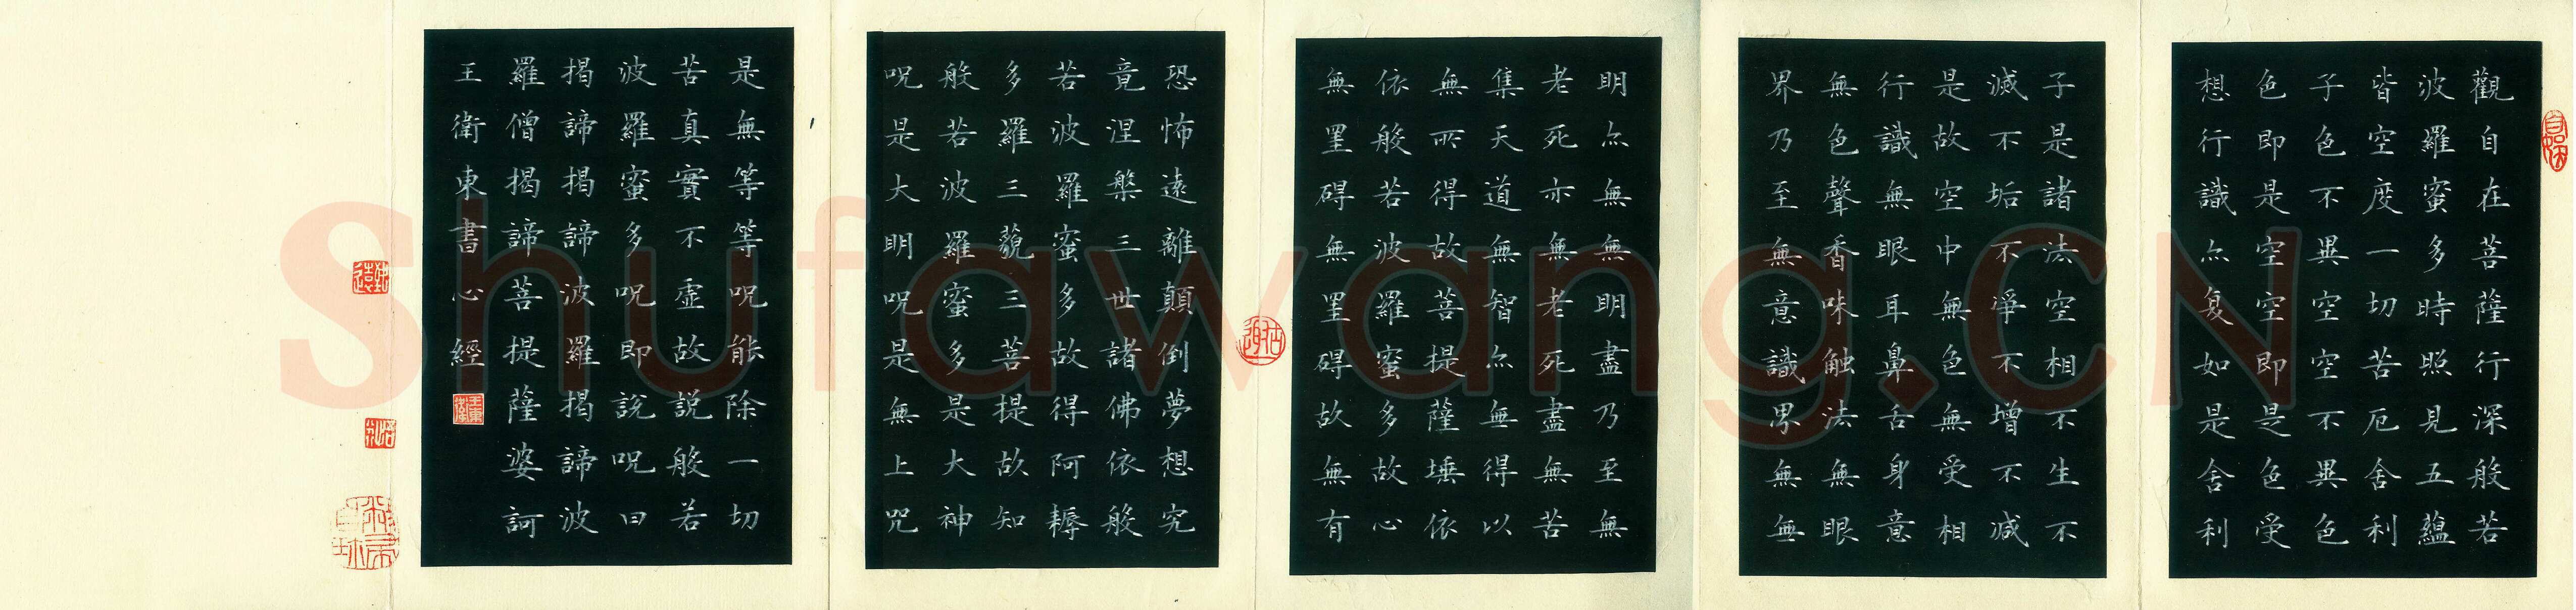 觀自在菩薩行深般若
波羅蜜多時照見五蘊
皆空度一切苦厄舍利
子色不異空空不異色
色即是空空即是色受
想行識亦复如是舍利
子是諸法空相不生不
滅不垢不淨不增不減
是故空中無色無受相
行識無眼耳鼻舌身意
無色聲香味触法無眼
界乃至無意識界無無
明亦無無明盡乃至無
老死亦無老死盡無苦
集天道無智亦無得以
無所得故菩提薩埵依
依般若波羅蜜多故心
無罣碍無罣碍故無有
恐怖遠離顛倒夢想究
竟涅槃三世諸佛依般
若波羅蜜多故得阿耨
多羅三藐三菩提故知
般若波羅蜜多是大神
呪是大明呪是無上咒
是無等等呪能除一切
苦真實不虛故説般若
波羅蜜多呪即説呪曰
揭諦揭諦波羅揭諦波
羅僧揭諦菩提薩婆訶
王衛東書心經
王衛東
Shufawang.CN